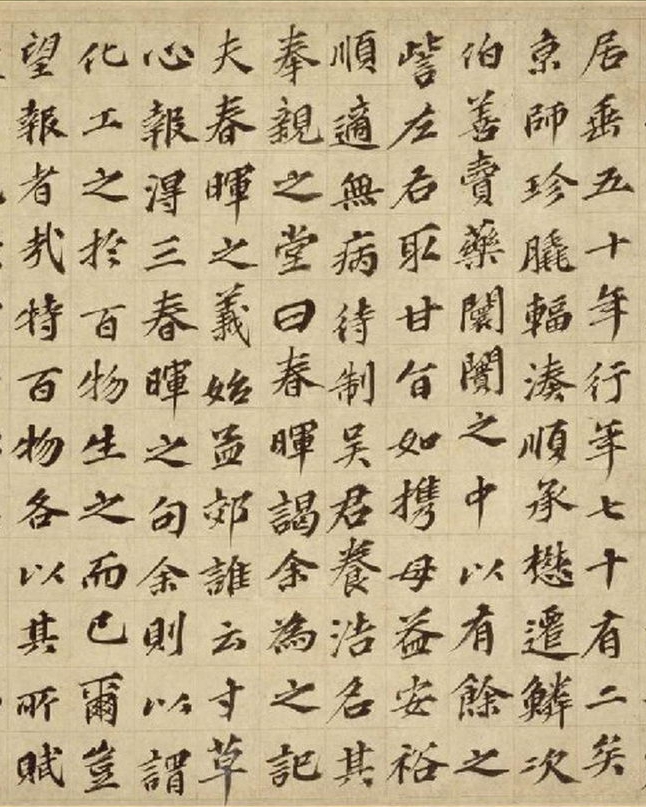 居垂五十年行年七十有二矣
京師珍膬輻湊順承懋遷鱗次
伯善賣藥闤闠之中以有餘之
訾左右取甘旨如携母益安裕
順適無病待制吴君養浩名其
奉親之堂曰春暉謁余為之記
夫春暉之義始孟郊誰云寸草
心報得三春暉之句余則以謂
化工之於百物生之而已爾豈
望報者哉特百物各以其所賦